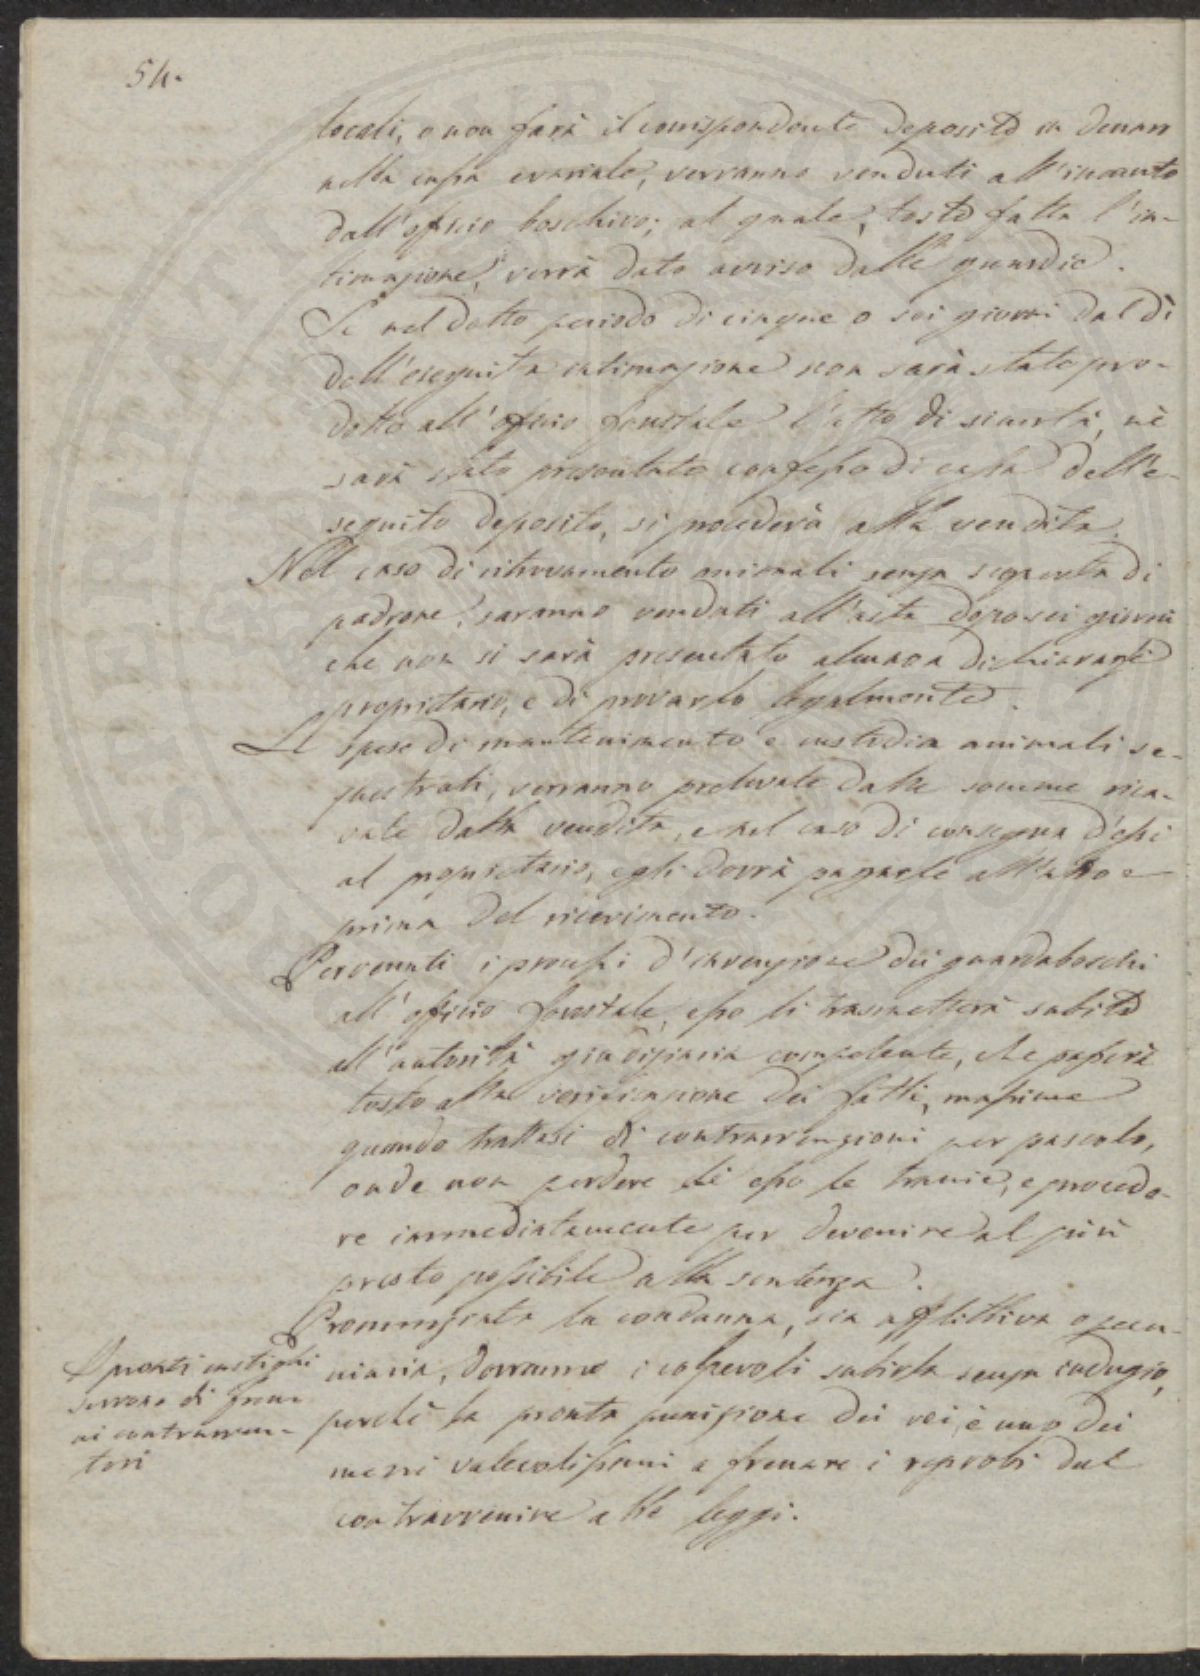 54.
locali, o non farà il corrispondente deposito in denari
nella cassa erariale, verranno venduti all'incanto
dall'officio boschivo; al quale, tosto fatta l'in-
timazione, verrà dato avviso dalle guardie.
Se nel detto periodo di cinque o sei giorni dal dì
dell'eseguita intimazione non sarà stato pro-
dotto all'officio forestale l'atto di sicurtà, nè
sarà stato presentato confesso di cassa dell'e-
seguito deposito, si procederà alla vendita.
Nel caso di ritrovamento animali senza scoperta di
padrone, saranno venduti all'asta dopo sei giorni
che non si sarà presentato alcuno a dichiararsi
proprietario, e di provarlo legalmente.
Le spese di mantenimento e custodia animali se-
questrati, verranno prelevate dalle somme rica-
vate dalla vendita, e nel caso di consegna d'essi
al proprietario, egli dovrà pagarle all'atto e
prima del ricevimento.
Pervenuti i processi d'invenzione dei guardaboschi
all'officio forestale, esso li trasmetterà subito
all'autorità giudiziaria competente, che passerà
tosto alla verificazione dei fatti, massime
quando trattasi di contravvenzioni per pascolo,
onde non perdere di esso le traccie, e procede-
re immediatamente per devenire al più
presto possibile alla sentenza.
Pronunziata la condanna, sia afflittiva o pecu-
niaria, dovranno i colpevoli subirla senza indugio,
perchè la pronta punizione dei rei, è uno dei
mezzi valevolissimi a frenare i reprobi dal
contravvenire alle leggi.
I pronti castighi
servono di freno
ai contravven-
tori